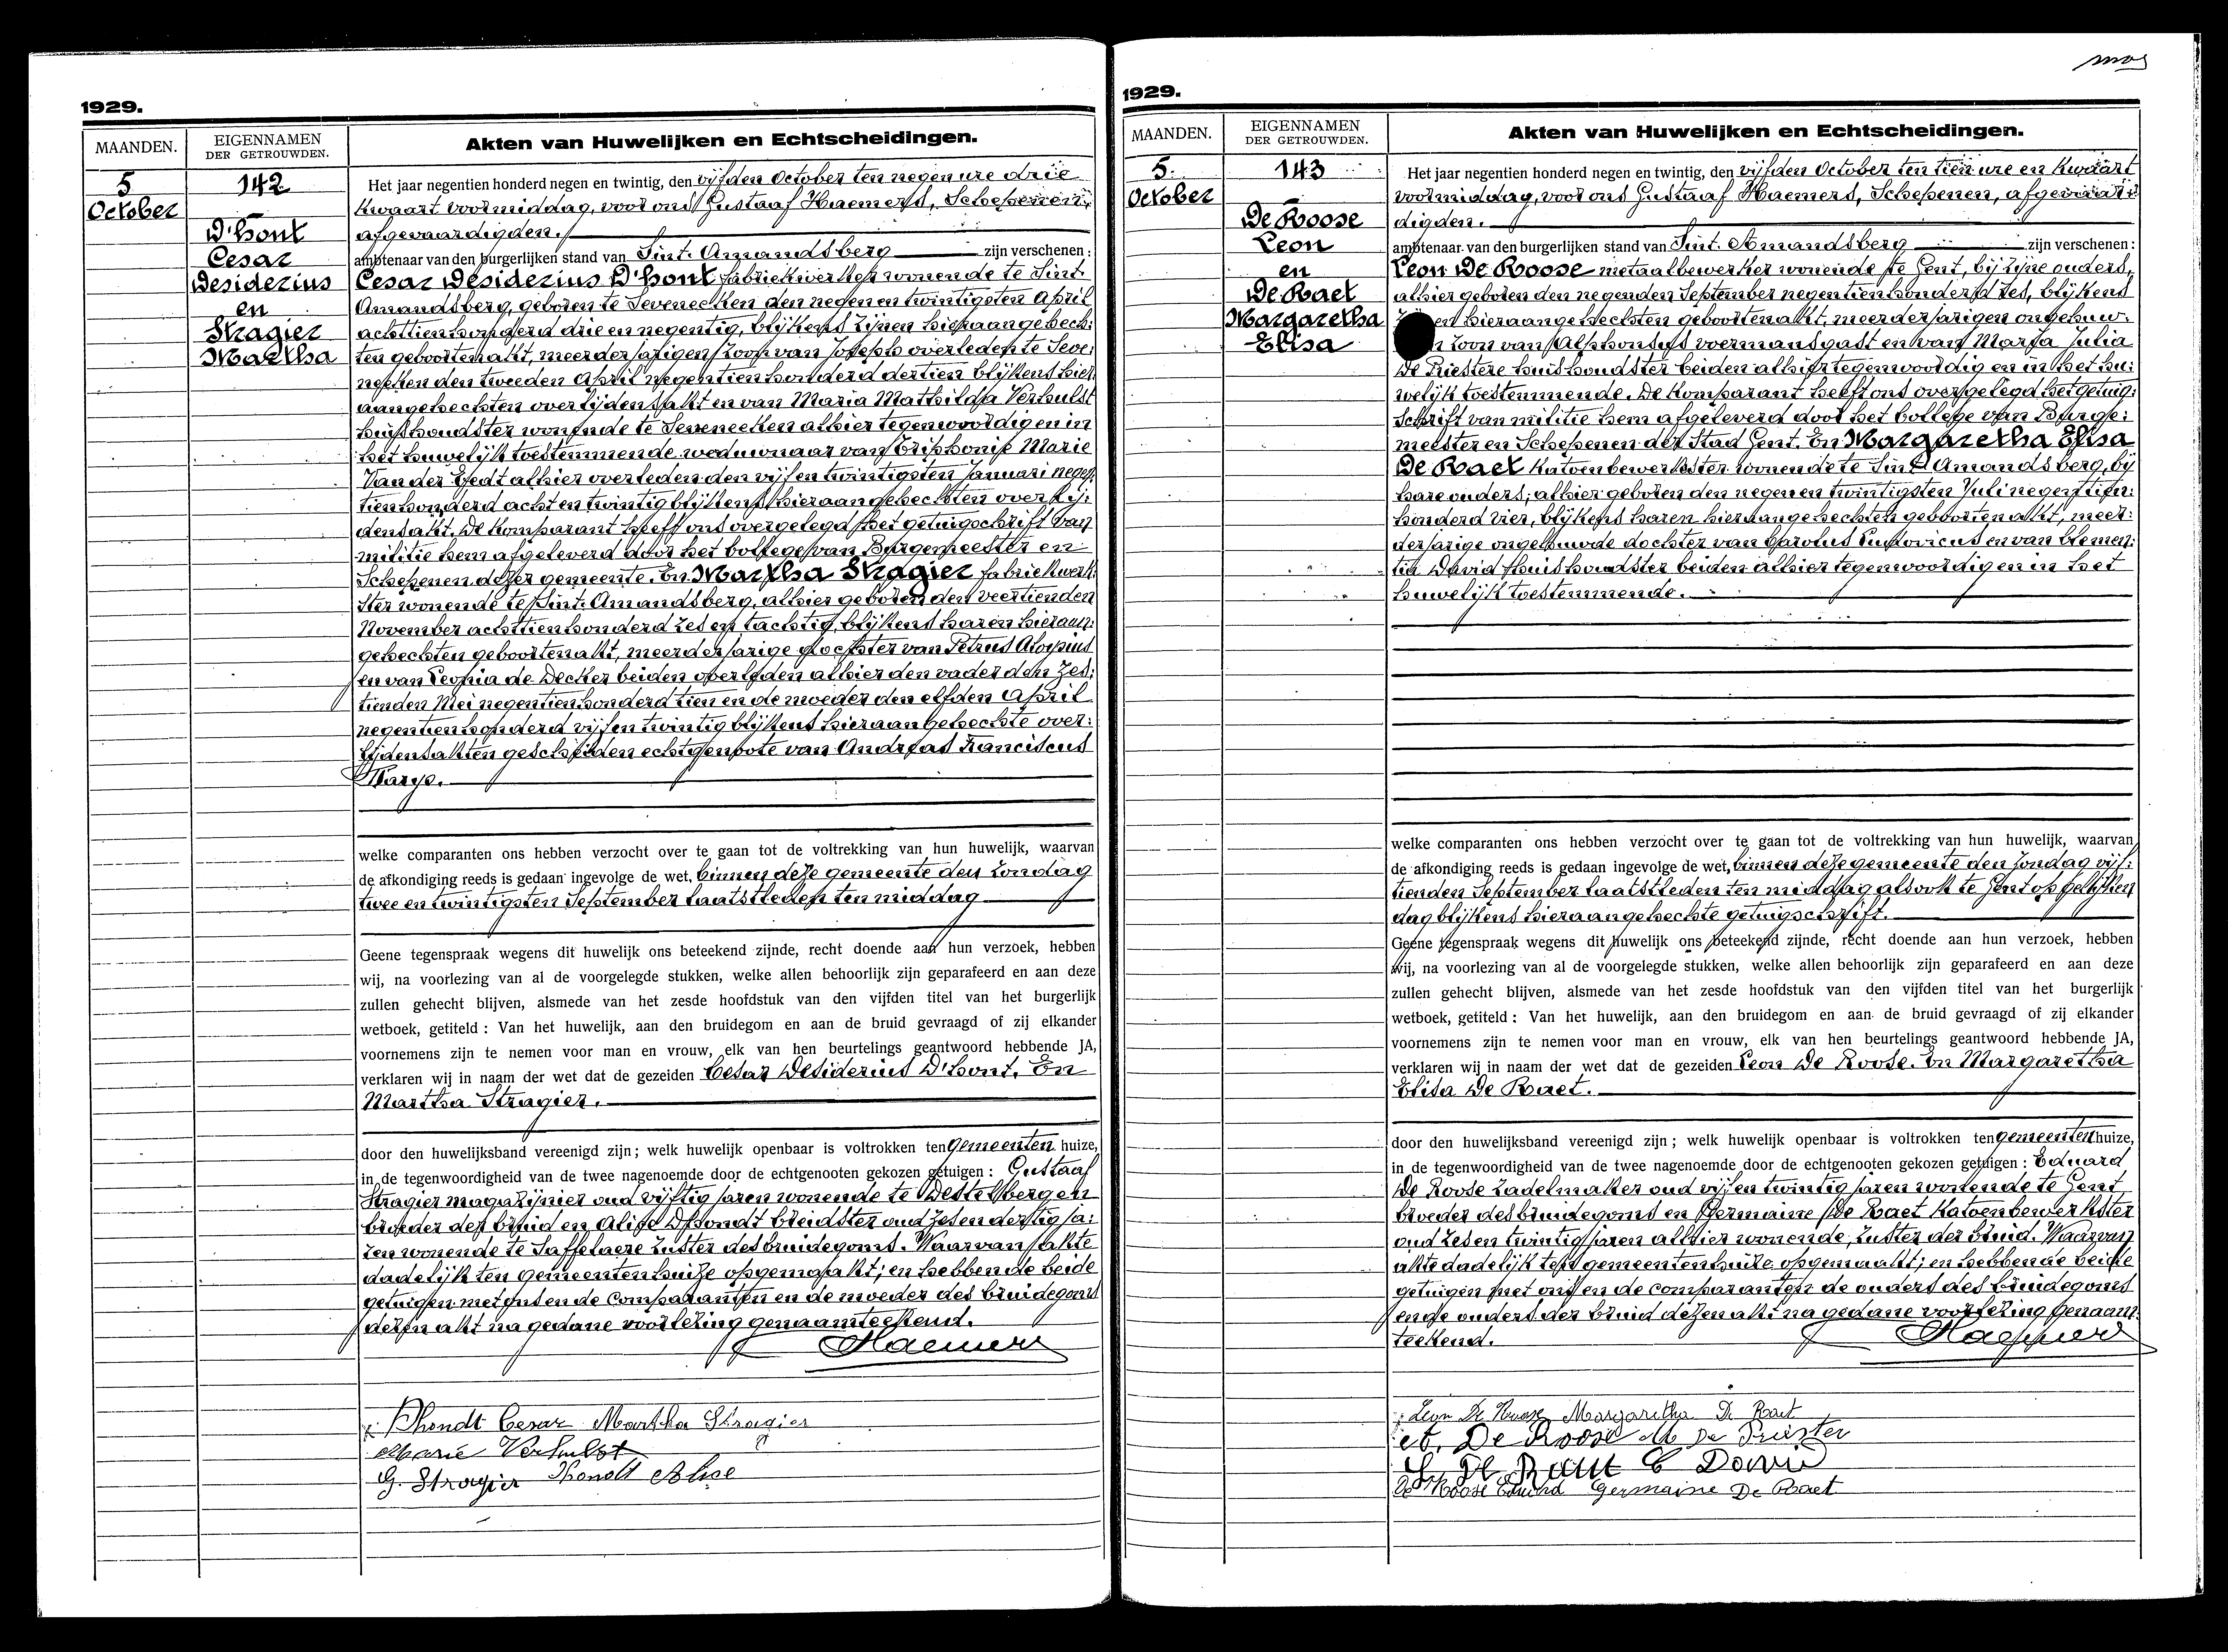 mos
1929.
MAANDEN.
EIGENNAMEN
DER GETROUWDEN.
Akten van Huwelijken en Echtscheidingen.
5
October
142
D'hont
Cesar
Desiderius
en
Stragier
Martha
Het jaar negentien honderd negen en twintig, den vijfden October ten negen ure drie
kwaart voormiddag, voor ons Gustaaf Haemers, Schepenen,
afgevaardigden.
ambtenaar van den burgerlijken stand van Sint-Amandsberg zijn verschenen :
Cesar Desiderius D'hont fabriekwerker wonende te Sint-
Amandsberg, geboren te Seveneeken den negen en twintigsten April
achttienhonderd drie en negentig, blijkens zijnen hieraangehech:
ten geboortenakt, meerderjarigen zoon van Joseph overleden te Seve:
neeken den tweeden April negentienhonderd dertien blijkens hier
aangehechten overlijdensakt en van Maria Mathilda Verhulst
huishoudster wonende te Seveneeken alhier tegenwoordig en in
het huwelijk toestemmende weduwnaar van Triphonie Marie
Van der Eedt alhier overleden den vijf en twintigsten Januari negen
tienhonderd acht en twintig blijkens hieraangehechten overlij:
densakt. De komparant heeft ons overgelegd het getuigschrift van
militie hem afgeleverd door het bollege van Burgemeester en
Schepenen dezer gemeente. En Martha Stragier fabriekwerk:
ster wonende te Sint-Amandsberg, alhier geboren den veertienden
November achttienhonderd zes en tachtig, blijkens haren hieraan:
gehechten geboortenakt, meerderjarige dochter van Petrus Aloysius
en van Leonia de Decker beiden overleden alhier den vader den zes:
tienden Mei negentienhonderd tien en de moeder den elfden April
negentienhonderd vijf en twintig blijkens hieraangehechte over:
lijdensakten gescheiden echtgenoote van Andreas Franciscus

welke comparanten ons hebben verzocht over te gaan tot de voltrekking van hun huwelijk, waarvan
de afkondiging reeds is gedaan ingevolge de wet, binnen deze gemeente den zondag
twee en twintigsten September laatstleden ten middag
Geene tegenspraak wegens dit huwelijk ons beteekend zijnde, recht doende aan hun verzoek, hebben
wij, na voorlezing van al de voorgelegde stukken, welke allen behoorlijk zijn geparafeerd en aan deze
zullen gehecht blijven, alsmede van het zesde hoofdstuk van den vijfden titel van het burgerlijk
wetboek, getiteld : Van het huwelijk, aan den bruidegom en aan de bruid gevraagd of zij elkander
voornemens zijn te nemen voor man en vrouw, elk van hen beurtelings geantwoord hebbende JA,
verklaren wij in naam der wet dat de gezeiden Cesar Desiderius D'hont. En
Martha Stragier.
door den huwelijksband vereenigd zijn ; welk huwelijk openbaar is voltrokken ten gemeenten huize,
in de tegenwoordigheid van de twee nagenoemde door de echtgenooten gekozen getuigen : Gustaaf
Stragier magazijnier oud vijftig jaren wonende te Destelbergen
broeder der bruid en Alice D'hondt breidster oud zes en dertig ja:
ren wonende te Saffelaere zuster des bruidegoms. Waarvan akte
dadelijk ten gemeentenhuize opgemaakt; en hebbende beide
getuigen met ons en de comparanten en de moeder des bruidegoms
dezen akt na gedane voorlezing genaamteekend.
Haemers
Dhondt Cesar Martha Stragier
Marie Verhulst
G. Stragier Dhondt Alice
1929.
MAANDEN.
EIGENNAMEN
DER GETROUWDEN.
Akten van Huwelijken en Echtscheidingen.
5.
October
143
De Roose
Leon
en
De Raet
Margaretha
Elisa
Het jaar negentien honderd negen en twintig, den vijfden October ten tien ure en kwaart
voormiddag, voor ons Gustaaf Haemers, Schepenen, afgevaar:
digden.
ambtenaar van den burgerlijken stand van Sint-Amandsberg zijn verschenen :
Leon De Roose metaalbewerker wonende te Gent, bij zijne ouders,
alhier geboren den negenden September negentienhonderd zes, blijkens
en hieraangehechten geboortenakt, meerderjarigen ongehuw:
n zoon van Alphonsus voermansgast en van Maria Julia
De Priestere huishoudster beiden alhier tegenwoordig en in het hu:
welijk toestemmende. De komparant heeft ons overgelegd het getuig:
schrift van militie hem afgeleverd door het bollege van Burge:
meester en Schepenen der Stad Gent. En Margaretha Elisa
De Raet katoenbewerkster wonende te Sint Amandsberg, bij
hare ouders; alhier geboren den negen en twintigsten Juli negentien:
honderd vier, blijkens haren hieraangehechten geboortenakt, meer:
derjarige ongehuwde dochter van Carolus Ludovicus en van Clemen:
tia David huishoudster beiden alhier tegenwoordig en in het
huwelijk toestemmende.
welke comparanten ons hebben verzocht over te gaan tot de voltrekking van hun huwelijk, waarvan
de afkondiging reeds is gedaan ingevolge de wet, binnen deze gemeente den zondag vijf:
tienden September laatstleden ten middag alsook te Gent op gelijken
dag blijkens hieraangehechte getuigschrift.
Geene tegenspraak wegens dit huwelijk ons beteekend zijnde, recht doende aan hun verzoek, hebben
wij, na voorlezing van al de voorgelegde stukken, welke allen behoorlijk zijn geparafeerd en aan deze
zullen gehecht blijven, alsmede van het zesde hoofdstuk van den vijfden titel van het burgerlijk
wetboek, getiteld : Van het huwelijk, aan den bruidegom en aan de bruid gevraagd of zij elkander
voornemens zijn te nemen voor man en vrouw, elk van hen beurtelings geantwoord hebbende JA,
verklaren wij in naam der wet dat de gezeiden Leon De Roose. En Margaretha
Elisa De Raet.
door den huwelijksband vereenigd zijn ; welk huwelijk openbaar is voltrokken ten gemeenten huize,
in de tegenwoordigheid van de twee nagenoemde door de echtgenooten gekozen getuigen : Eduard
De Roose zadelmaker oud vijf en twintig jaren wonende te Gent
broeder des bruidegoms en Germaine De Raet katoenbewerkster
oud zes en twintig jaren alhier wonende, zuster der bruid. Waarvan
akte dadelijk ten gemeentenhuize opgemaakt; en hebbende beide
getuigen met ons en de comparanten de ouders des bruidegoms
en de ouders der bruid dezen akt na gedane voorlezing genaam:
teekend.
Haemers
Leon De Roose Margaretha De Raet
A. De Roose M De Priester
De Raet C David
De Roose Eduard Germaine De Raet